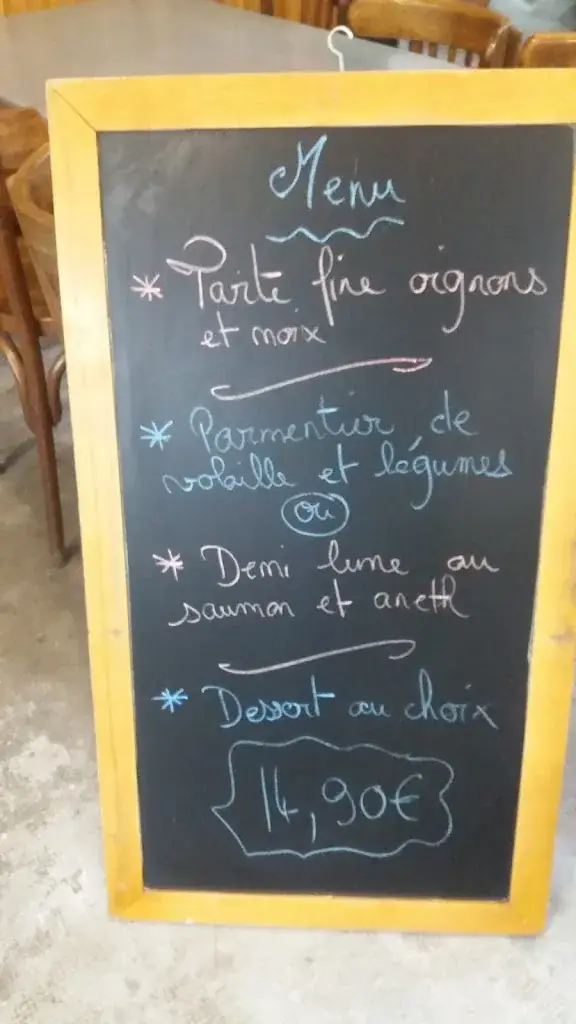 Menu
* Tarte fine oignons
et noix
* Parmentier de
volaille et légumes
ou
* Demi lune au
saumon et aneth
* Dessert au choix
14,90€